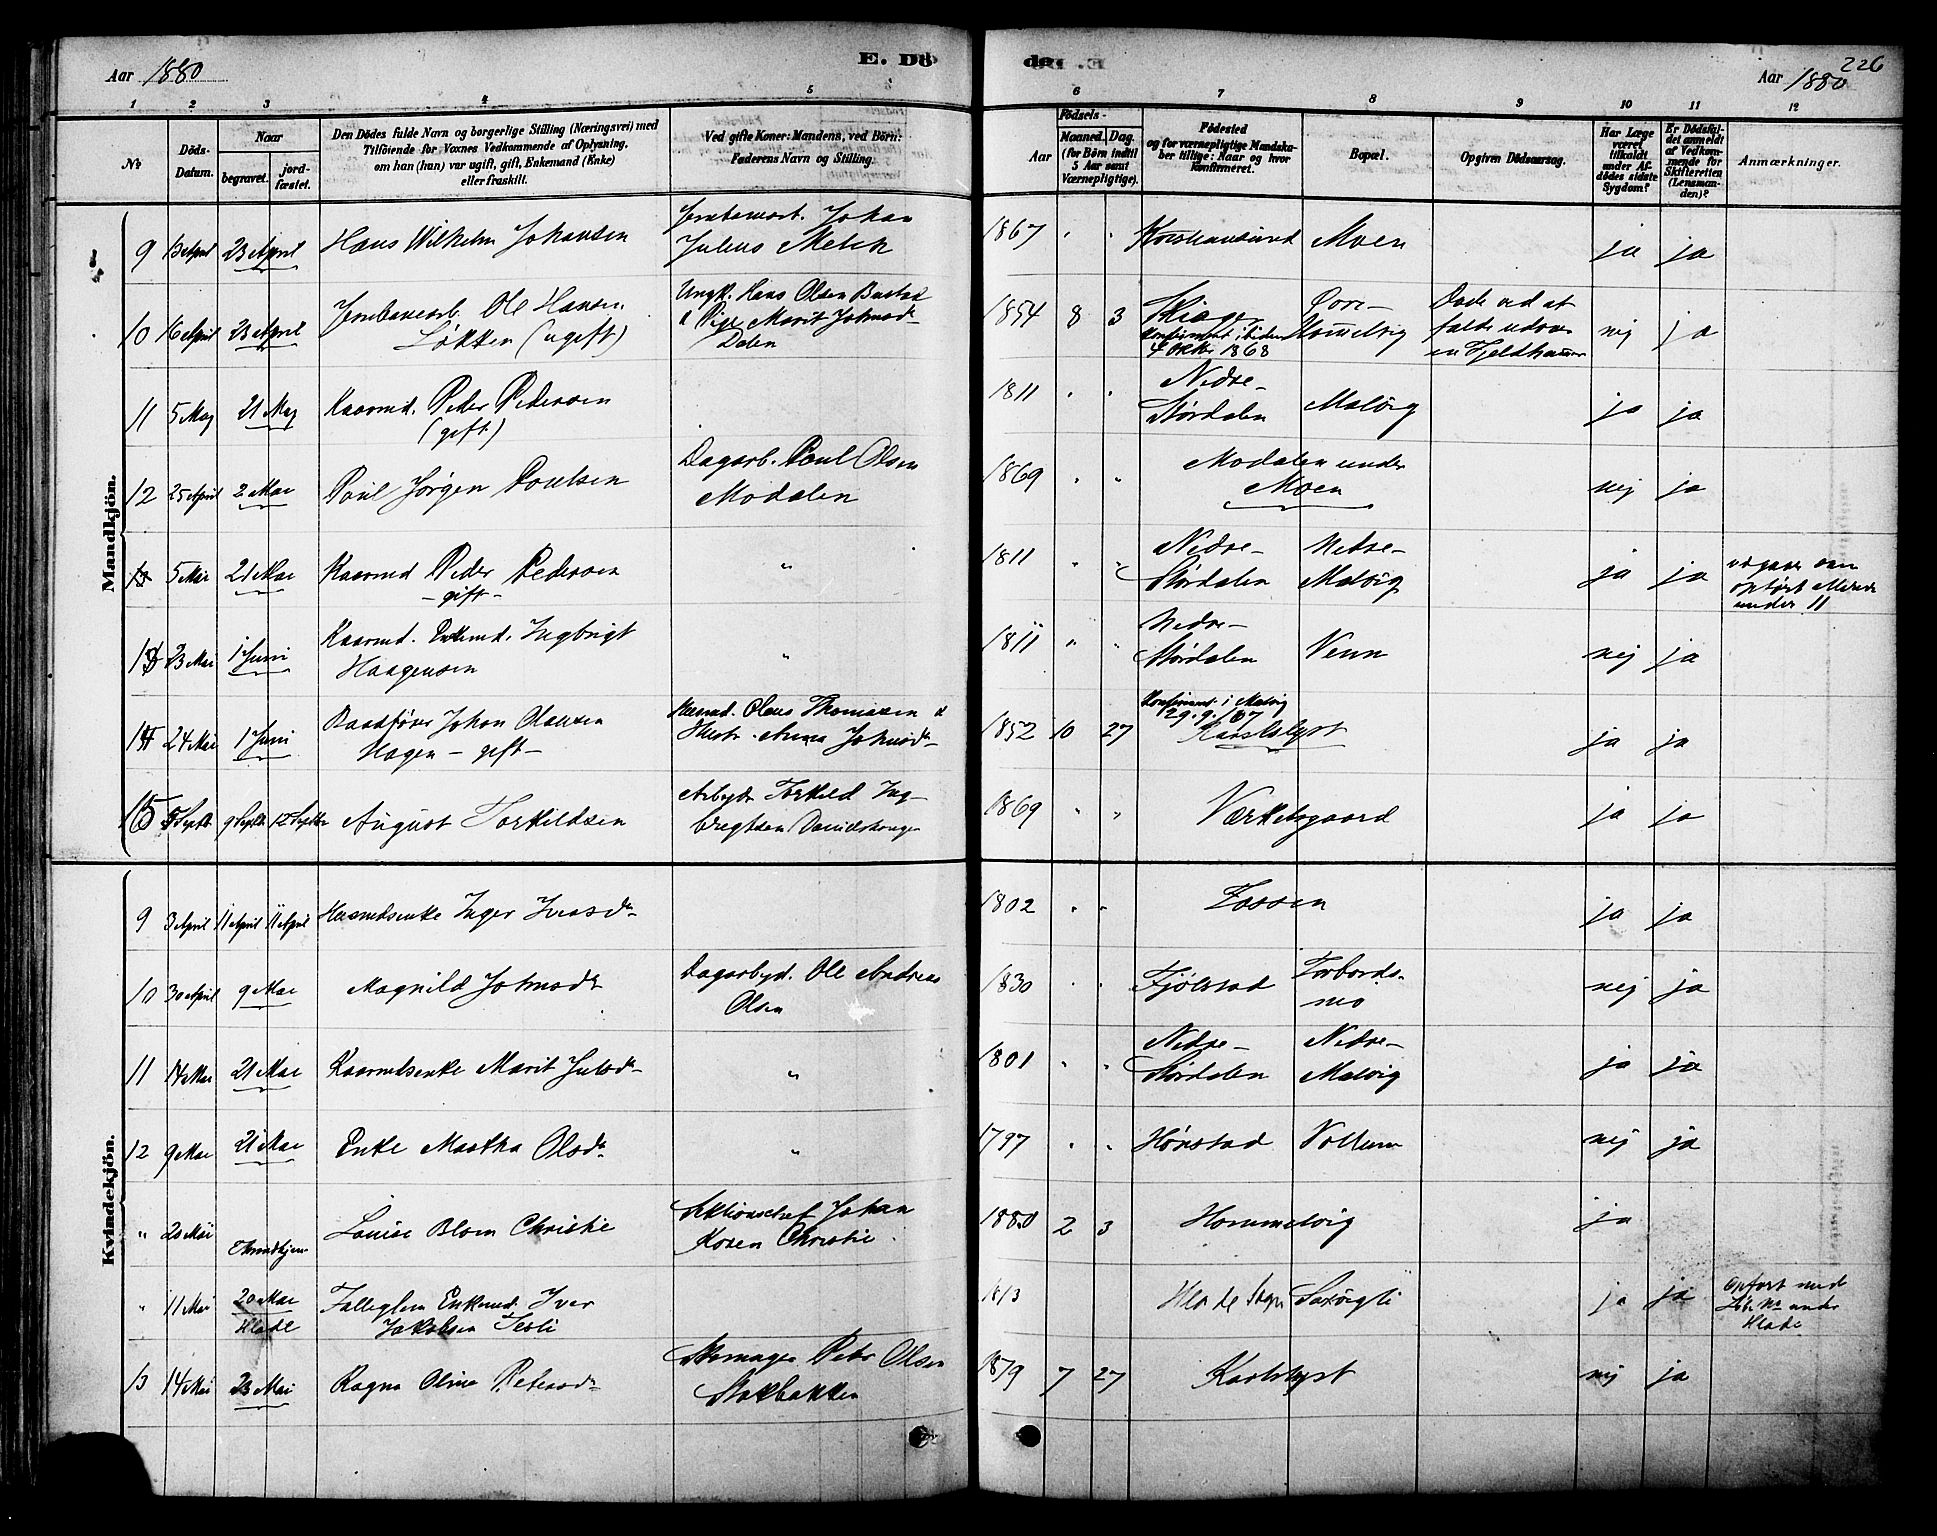 Aar 1880
E. Dö
1 2 3 4 5
№
Döds-Datum.
Naar
begravet.
jord-fæstet.
Den Dödes fulde Navn og borgerlige Stilling (Næringsvei) med
Tilföiende for Voxnes Vedkommende af Oplysning,
om han (hun) var ugift, gift, Enkemand (Enke)
eller fraskilt.
Ved gifte Koner: Mandens, ved Börn:
Faderens Navn og Stilling.
de.
226
Aar 1880
6 7 8 9 10 11 12
Födsels-
Aar
Maaned. Dag.
(for Börn indtil
5 Aar samt
Værnepligtige).
Födested
og for værnepligtige Mandska-
ber tillige: Naar og hvor
konfirmeret.
Bopæl.
Opgiven Dödsaarsag.
Har Læge
været
tilkaldt
under Af-
dödes sidste
Sygdom?
Er Dödsfal-
det anmeldt
af Vedkom-
mende for
Skifteretten
(Lensman-
den)?
Anmærkninger.
Mandkjön.
9 13 April 23 April Hans Wilhelm Johansen
Jernbanearb. Johan
Julius Melch
1867 " " Kristiansund Moen ja ja
10 16 April 23 April Jernbanearb. Ole Hansen
Løkken (ugift)
Ungk. Hans Olsen Bustad
& Pige Marit Johnsd.
Dalen
1854 8 3
4 Oktr 1868
Hommelvig
Døde ved at
falde ud over
en Fjeldhammer
nej ja
11 5 Maj 21 Maj Kaarmd. Peder Pedersen
(gift)
1811 " " Nedre-
Størdalen Malvig ja ja
12 25 April 2 Mai Poul Jørgen Poulsen
Dagarb. Poul Olsen
Modalen
1869 " " Modalen under
Moen nej ja
13 5 Mai 21 Mai Kaarmd Peder Pedersen
- gift -
"
1811 " " Nedre-
Størdalen
Nedre-
Malvig ja ja
udgaar som
opført
under 11
13 23 Mai 1 Juni Kaarmd. Enkemd. Ingbrigt
Haagensen
"
1811 " " Nedre-
Størdalen Venn nej ja
14 24 Mai 1 Juni Baadfører Johan Olausen
Hagen - gift -
Husmd. Olaus Thomassen &
Hustr. Anna Johnsd.
1852 10 27
Konfirmert i Malvig
29.9.187
Karlslyst ja ja
15 5 Septbr 9 Septbr 12 Septbr August Torkildsen
Arbejdr Torkild Ing-
brigtsen
1869 " " Værketsgaard ja ja
Kvindekjön.
9 3 April 11 April 11 April Husmdsenke Inger Iversd.
1802 " " Fossen ja ja
10 30 April 9 Mai Magnild Johnsdr
Dagarbejd. Ole Andreas
Olsen
1830 " " Fjølstad
Torbords-
mo nej ja
11 14 Mai 21 Mai Kaarmdsenke Marit Julsdr
"
1801 " " Nedre-
Størdalen
Nedre-
Malvig ja ja
12 9 Mai 21 Mai Enke Martha Olsdr
"
1797 " " Hønstad Vollum nej ja
" 20 Mai Throndhjem Louise Blom Christie
Sektionschef Johan
Koren Christie.
1880 2 3 Hommelvig ja
" 11 Mai 20 Mai
Hlade
Falleglem Enkemd. Iver
Jakobsen Tesli
1813 Hlade Sogn Saxvigli ja ja
Opført med
Løb. No under
Hlade
13 14 Mai 23 Mai Ragna Oline Petersdr
Skomager Petr Olsen
Stokbakken
1879 7 27 Karlslyst nej ja